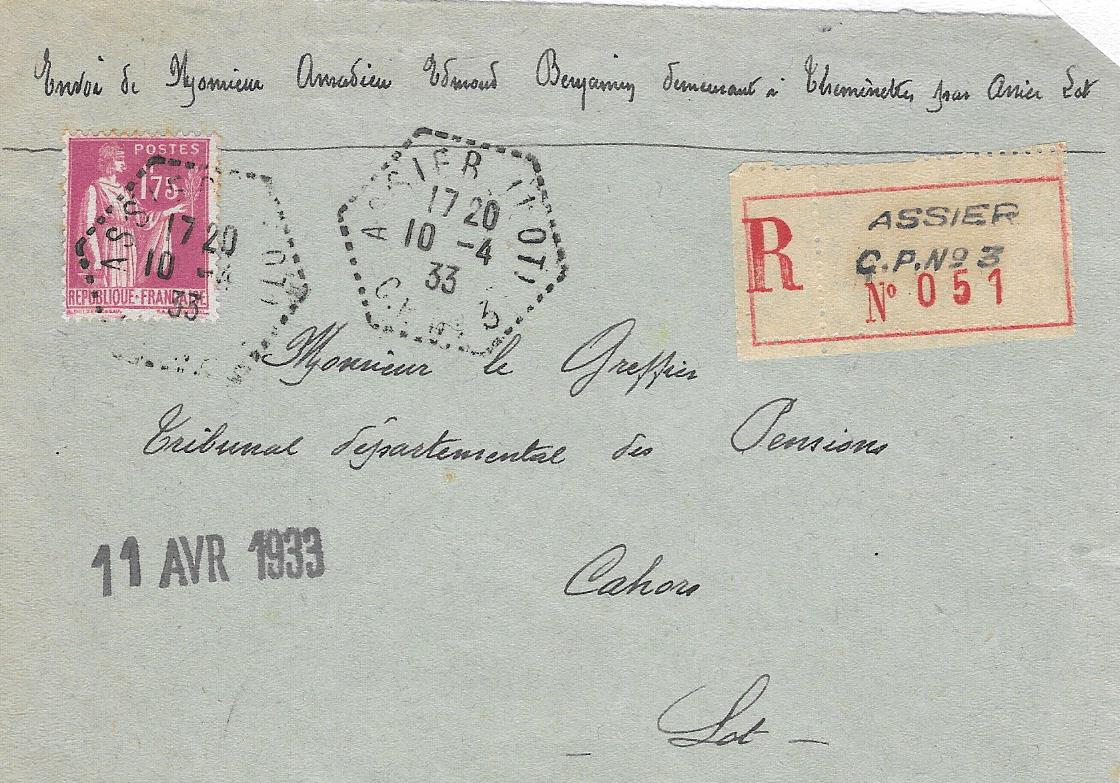 Envoi de Monsieur Amadieu Edmond Benjamin demeurant à Theminettes par Assier Lot
POSTES
1F75
REPUBLIQUE-FRANÇAISE
ASSIER (LOT)
17 20
10 -4
33
ASSIER (LOT)
17 20
10 -4
33
C.P. N° 3
R
ASSIER
C.P.N° 3
N° 051
Monsieur le Greffier
Tribunal départemental des Pensions
11 AVR 1933
Cahors
- Lot -